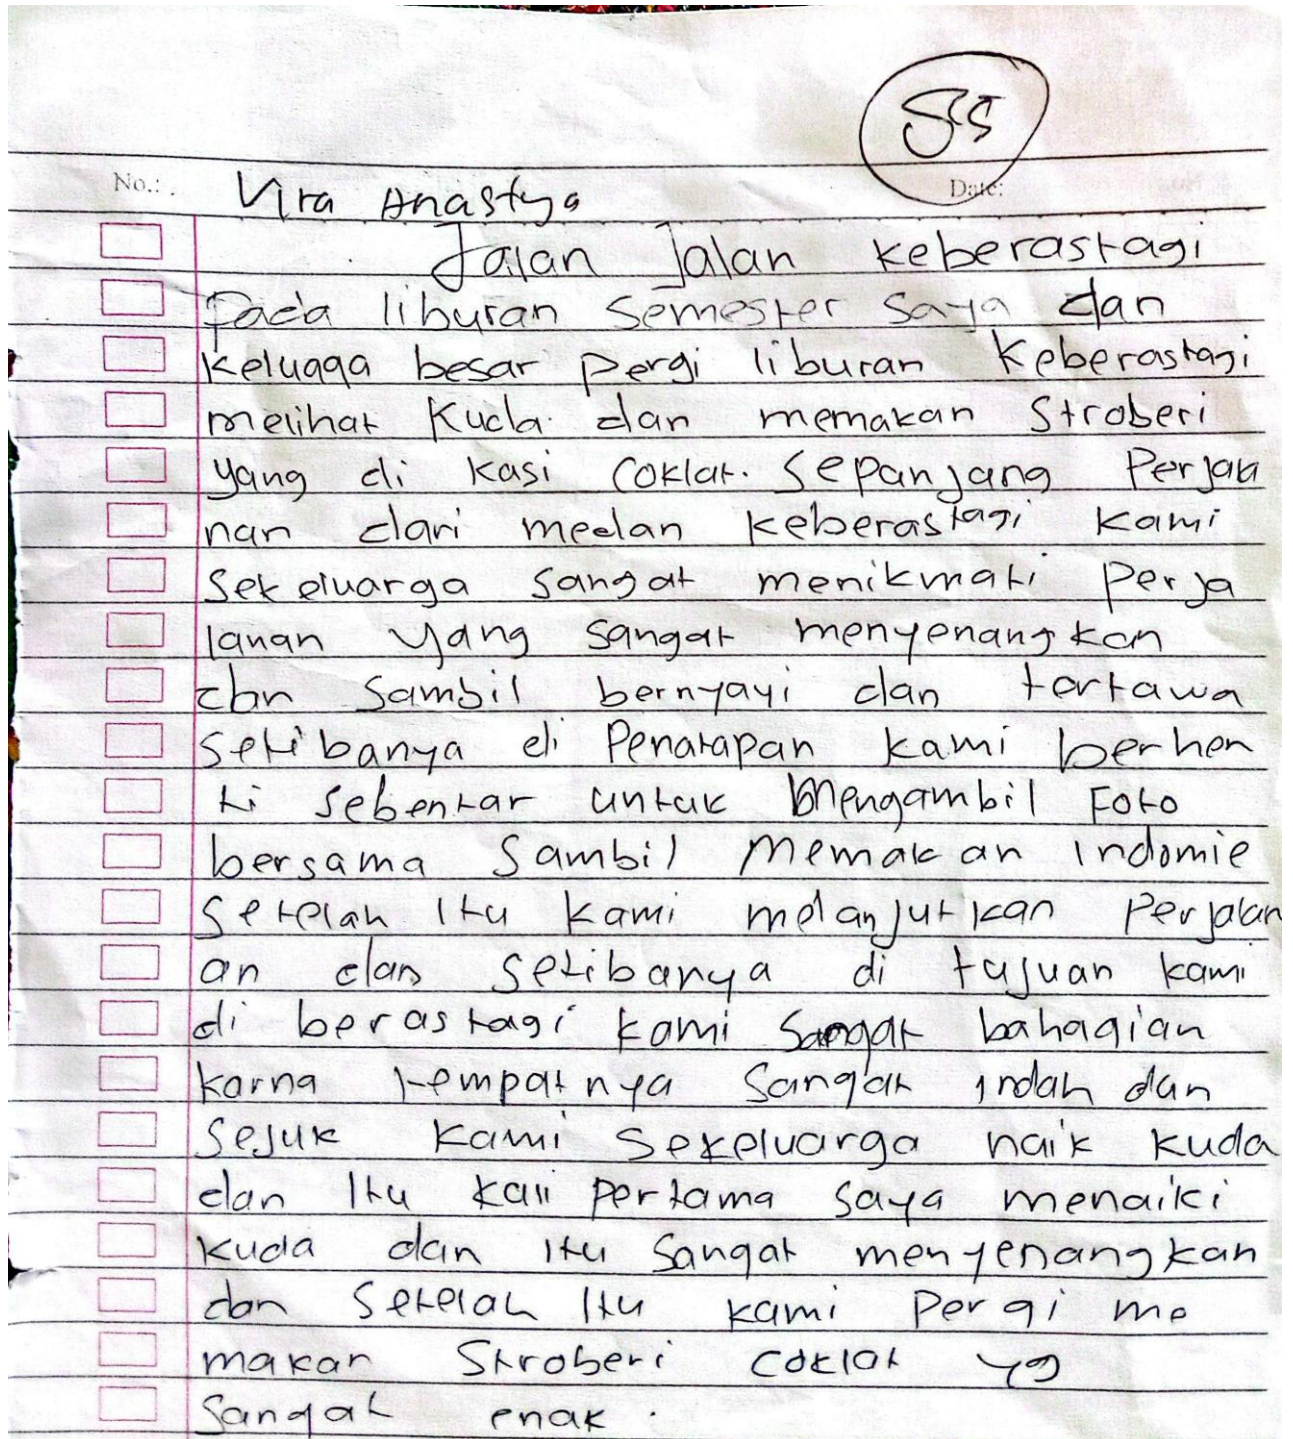 85
No.:
Date:
Vira Anastya
Jalan Jalan keberastagi
Pada liburan Semester Saya dan
Kelugga besar pergi liburan Keberastagi
melihat Kuda dan memakan Stroberi
yang di kasi Coklat. Sepanjang Perjala
nan dari medan keberastagi kami
Sekeluarga Sangat menikmati Perja
lanan yang sangat menyenangkan
dan Sambil bernyayi dan tertawa
Setibanya di Penatapan kami berhen
ti sebentar untuk Mengambil Foto
bersama Sambil Memakan Indomie
Setelah Itu kami melanjutkan Perjalan
an dan Setibanya di tujuan kami
di berastagi kami Sangat bahagian
karna tempatnya Sangat Indah dan
Sejuk kami Sekeluarga naik kuda
dan Itu kali pertama saya menaiki
kuda dan Itu Sangat menyenangkan
dan Setelah Itu kami Pergi me
makan Stroberi Coklat yg
Sangat enak.